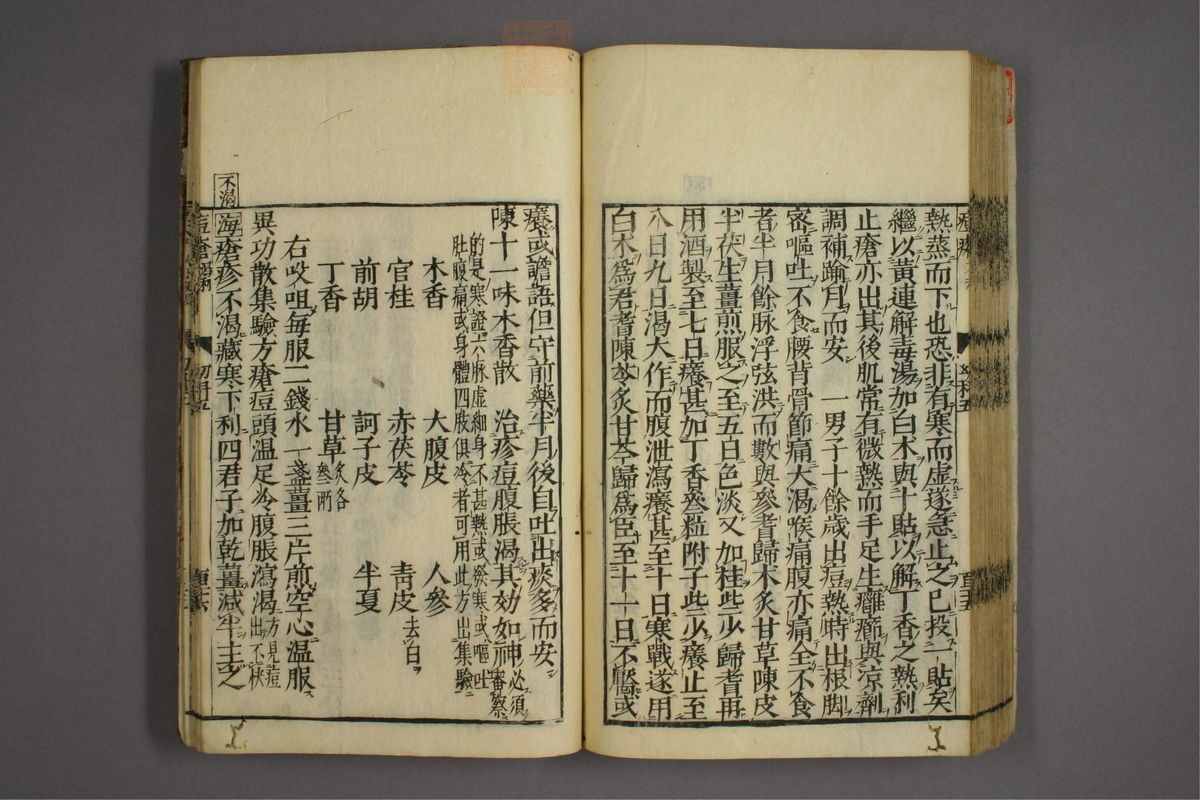 熱蒸而下也恐非有寒而虛遂急止之已投一貼矣
繼以黃連解毒湯加白朮與十貼以解丁香之熱利
止瘡亦出其後肌常有微熱而手足生癰癤與涼劑
調補踰月而安 一男子十餘歲出痘熱時出根脚
密嘔吐不食腰背骨節痛大渴喉痛腹亦痛全不食
者半月餘脉浮弦洪而數與參耆歸朮炙甘草陳皮
半茯生薑煎服之至五日色淡又加桂些少歸耆再
用酒製至七日癢甚加丁香叄粒附子些少癢止至
八日九日渴大作而腹泄瀉癢甚至十日寒戰遂用
白朮爲君耆陳芩炙甘芩歸爲臣至十一日不靨或
癢或譫語但守前藥半月後自吐出痰多而安
陳十一味木香散 治疹痘腹脹渴其効如神必須審察
的是寒證六脉虛細身不甚熱或發寒或嘔吐
肚腹痛或身體四肢俱冷者可用此方出集驗
木香 大腹皮 人參
官桂 赤茯苓 青皮去白
前胡 訶子皮 半夏
丁香 甘草炙各叄兩
右㕮咀每服二錢水一盞薑三片煎空心溫服
異功散集驗方瘡痘頭溫足冷腹脹瀉渴方見痘出不快
不渴
海瘡疹不渴藏寒下利四君子加乾薑減半主之